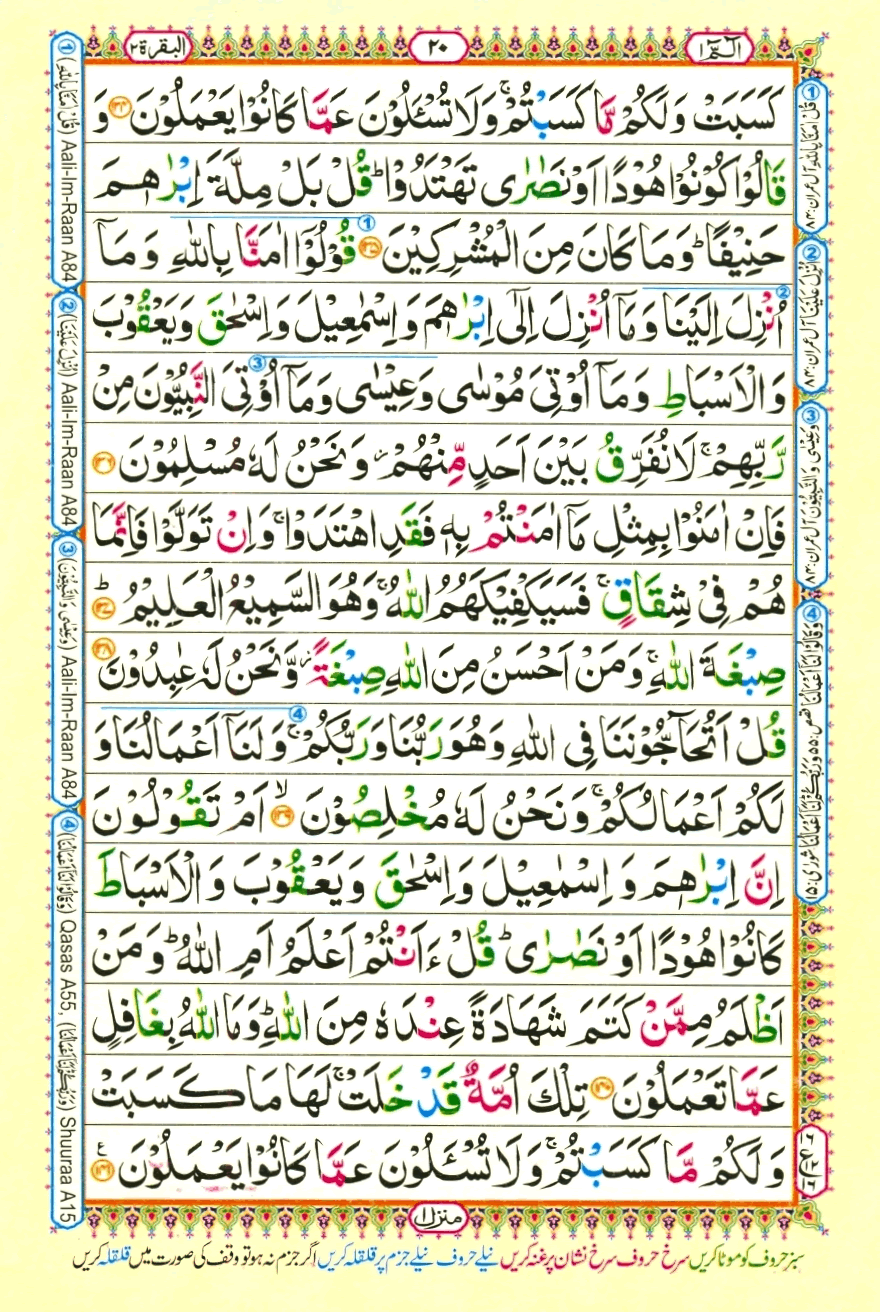 الٓمّٓ ۱
۲۰
البقرة ۲
كَسَبَتْ وَلَكُمْ مَّا كَسَبْتُمْ ۚ وَلَا تُسْـَٔلُوْنَ عَمَّا كَانُوْا يَعْمَلُوْنَ ﴿۱۳۴﴾ وَ
قَالُوْا كُوْنُوْا هُوْدًا اَوْ نَصٰرٰى تَهْتَدُوْا ؕ قُلْ بَلْ مِلَّةَ اِبْرٰهٖمَ
حَنِيْفًا ؕ وَمَا كَانَ مِنَ الْمُشْرِكِيْنَ ﴿۱۳۵﴾ قُوْلُوْٓا اٰمَنَّا بِاللّٰهِ وَمَآ
اُنْزِلَ اِلَيْنَا وَمَآ اُنْزِلَ اِلٰٓى اِبْرٰهٖمَ وَاِسْمٰعِيْلَ وَاِسْحٰقَ وَيَعْقُوْبَ
وَالْاَسْبَاطِ وَمَآ اُوْتِىَ مُوْسٰى وَعِيْسٰى وَمَآ اُوْتِىَ النَّبِيُّوْنَ مِنْ
رَّبِّهِمْ ۚ لَا نُفَرِّقُ بَيْنَ اَحَدٍ مِّنْهُمْ ۖ وَنَحْنُ لَهٗ مُسْلِمُوْنَ ﴿۱۳۶﴾
فَاِنْ اٰمَنُوْا بِمِثْلِ مَآ اٰمَنْتُمْ بِهٖ فَقَدِ اهْتَدَوْا ۚ وَاِنْ تَوَلَّوْا فَاِنَّمَا
هُمْ فِىْ شِقَاقٍ ۚ فَسَيَكْفِيْكَهُمُ اللّٰهُ ۚ وَهُوَ السَّمِيْعُ الْعَلِيْمُ ؕ ﴿۱۳۷﴾
صِبْغَةَ اللّٰهِ ۚ وَمَنْ اَحْسَنُ مِنَ اللّٰهِ صِبْغَةً ۖ وَّنَحْنُ لَهٗ عٰبِدُوْنَ ﴿۱۳۸﴾
قُلْ اَتُحَآجُّوْنَنَا فِى اللّٰهِ وَهُوَ رَبُّنَا وَرَبُّكُمْ ۚ وَلَنَآ اَعْمَالُنَا وَ
لَكُمْ اَعْمَالُكُمْ ۚ وَنَحْنُ لَهٗ مُخْلِصُوْنَ ۙ ﴿۱۳۹﴾ اَمْ تَقُوْلُوْنَ
اِنَّ اِبْرٰهٖمَ وَاِسْمٰعِيْلَ وَاِسْحٰقَ وَيَعْقُوْبَ وَالْاَسْبَاطَ
كَانُوْا هُوْدًا اَوْ نَصٰرٰى ؕ قُلْ ءَاَنْتُمْ اَعْلَمُ اَمِ اللّٰهُ ؕ وَمَنْ
اَظْلَمُ مِمَّنْ كَتَمَ شَهَادَةً عِنْدَهٗ مِنَ اللّٰهِ ؕ وَمَا اللّٰهُ بِغَافِلٍ
عَمَّا تَعْمَلُوْنَ ﴿۱۴۰﴾ تِلْكَ اُمَّةٌ قَدْ خَلَتْ ۚ لَهَا مَا كَسَبَتْ
وَلَكُمْ مَّا كَسَبْتُمْ ۚ وَلَا تُسْـَٔلُوْنَ عَمَّا كَانُوْا يَعْمَلُوْنَ ﴿۱۴۱﴾ ع
① قُلْ اٰمَنَّا بِاللّٰهِ آل عمران: ۸۴
② اُنْزِلَ عَلَيْنَا آل عمران: ۸۴
③ وَعِيْسٰى وَالنَّبِيُّوْنَ آل عمران: ۸۴
④ وَقَالُوْا لَنَآ اَعْمَالُنَا قصص: ۵۵ وَرَبُّكُمْ لَنَآ اَعْمَالُنَا شورى: ۱۵
① (قُلْ اٰمَنَّا بِاللّٰهِ) Aali-Im-Raan A84
② (اُنْزِلَ عَلَيْنَا) Aali-Im-Raan A84
③ (وَعِيْسٰى وَالنَّبِيُّوْنَ) Aali-Im-Raan A84
④ (وَقَالُوْا لَنَآ اَعْمَالُنَا) Qasas A55, (وَرَبُّكُمْ لَنَآ اَعْمَالُنَا) Shuuraa A15
منزل ۱
سبز حروف کو موٹا کریں سرخ حروف سرخ نشان پر غنہ کریں نیلے حروف نیلے جزم پر قلقلہ کریں اگر جزم نہ ہو تو وقف کی صورت میں قلقلہ کریں